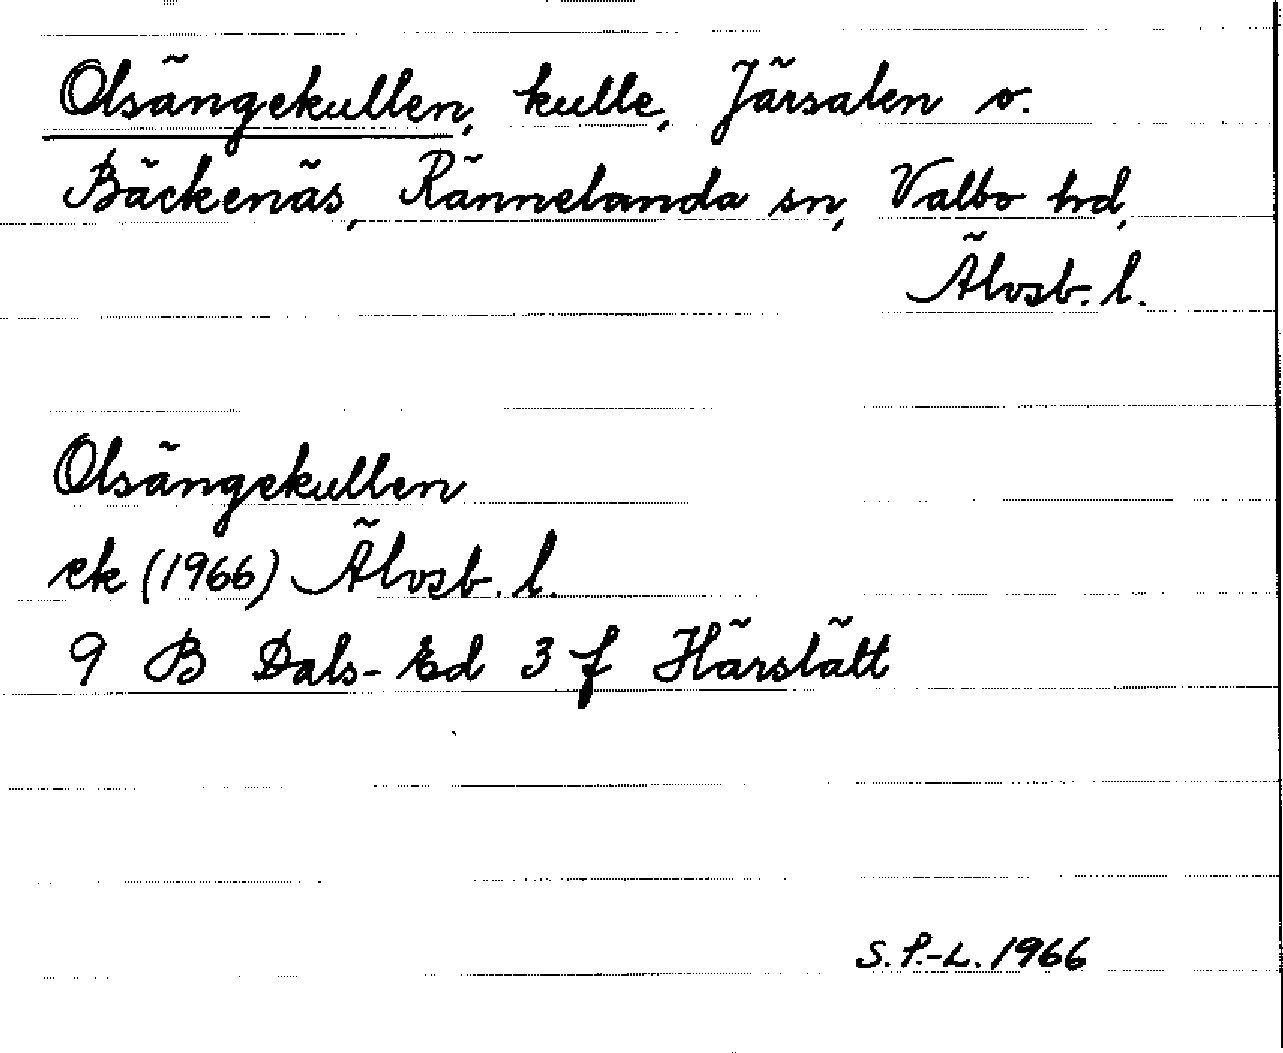 Olsängekullen, kulle, Järsalen o.
Bäckenäs, Rännelanda sn, Valbo hd,
Älvsb. l.
Olsängekullen
ek (1966) Älvsb. l.
9 B Dals-Ed 3 f Härslätt
S. P.-L. 1966